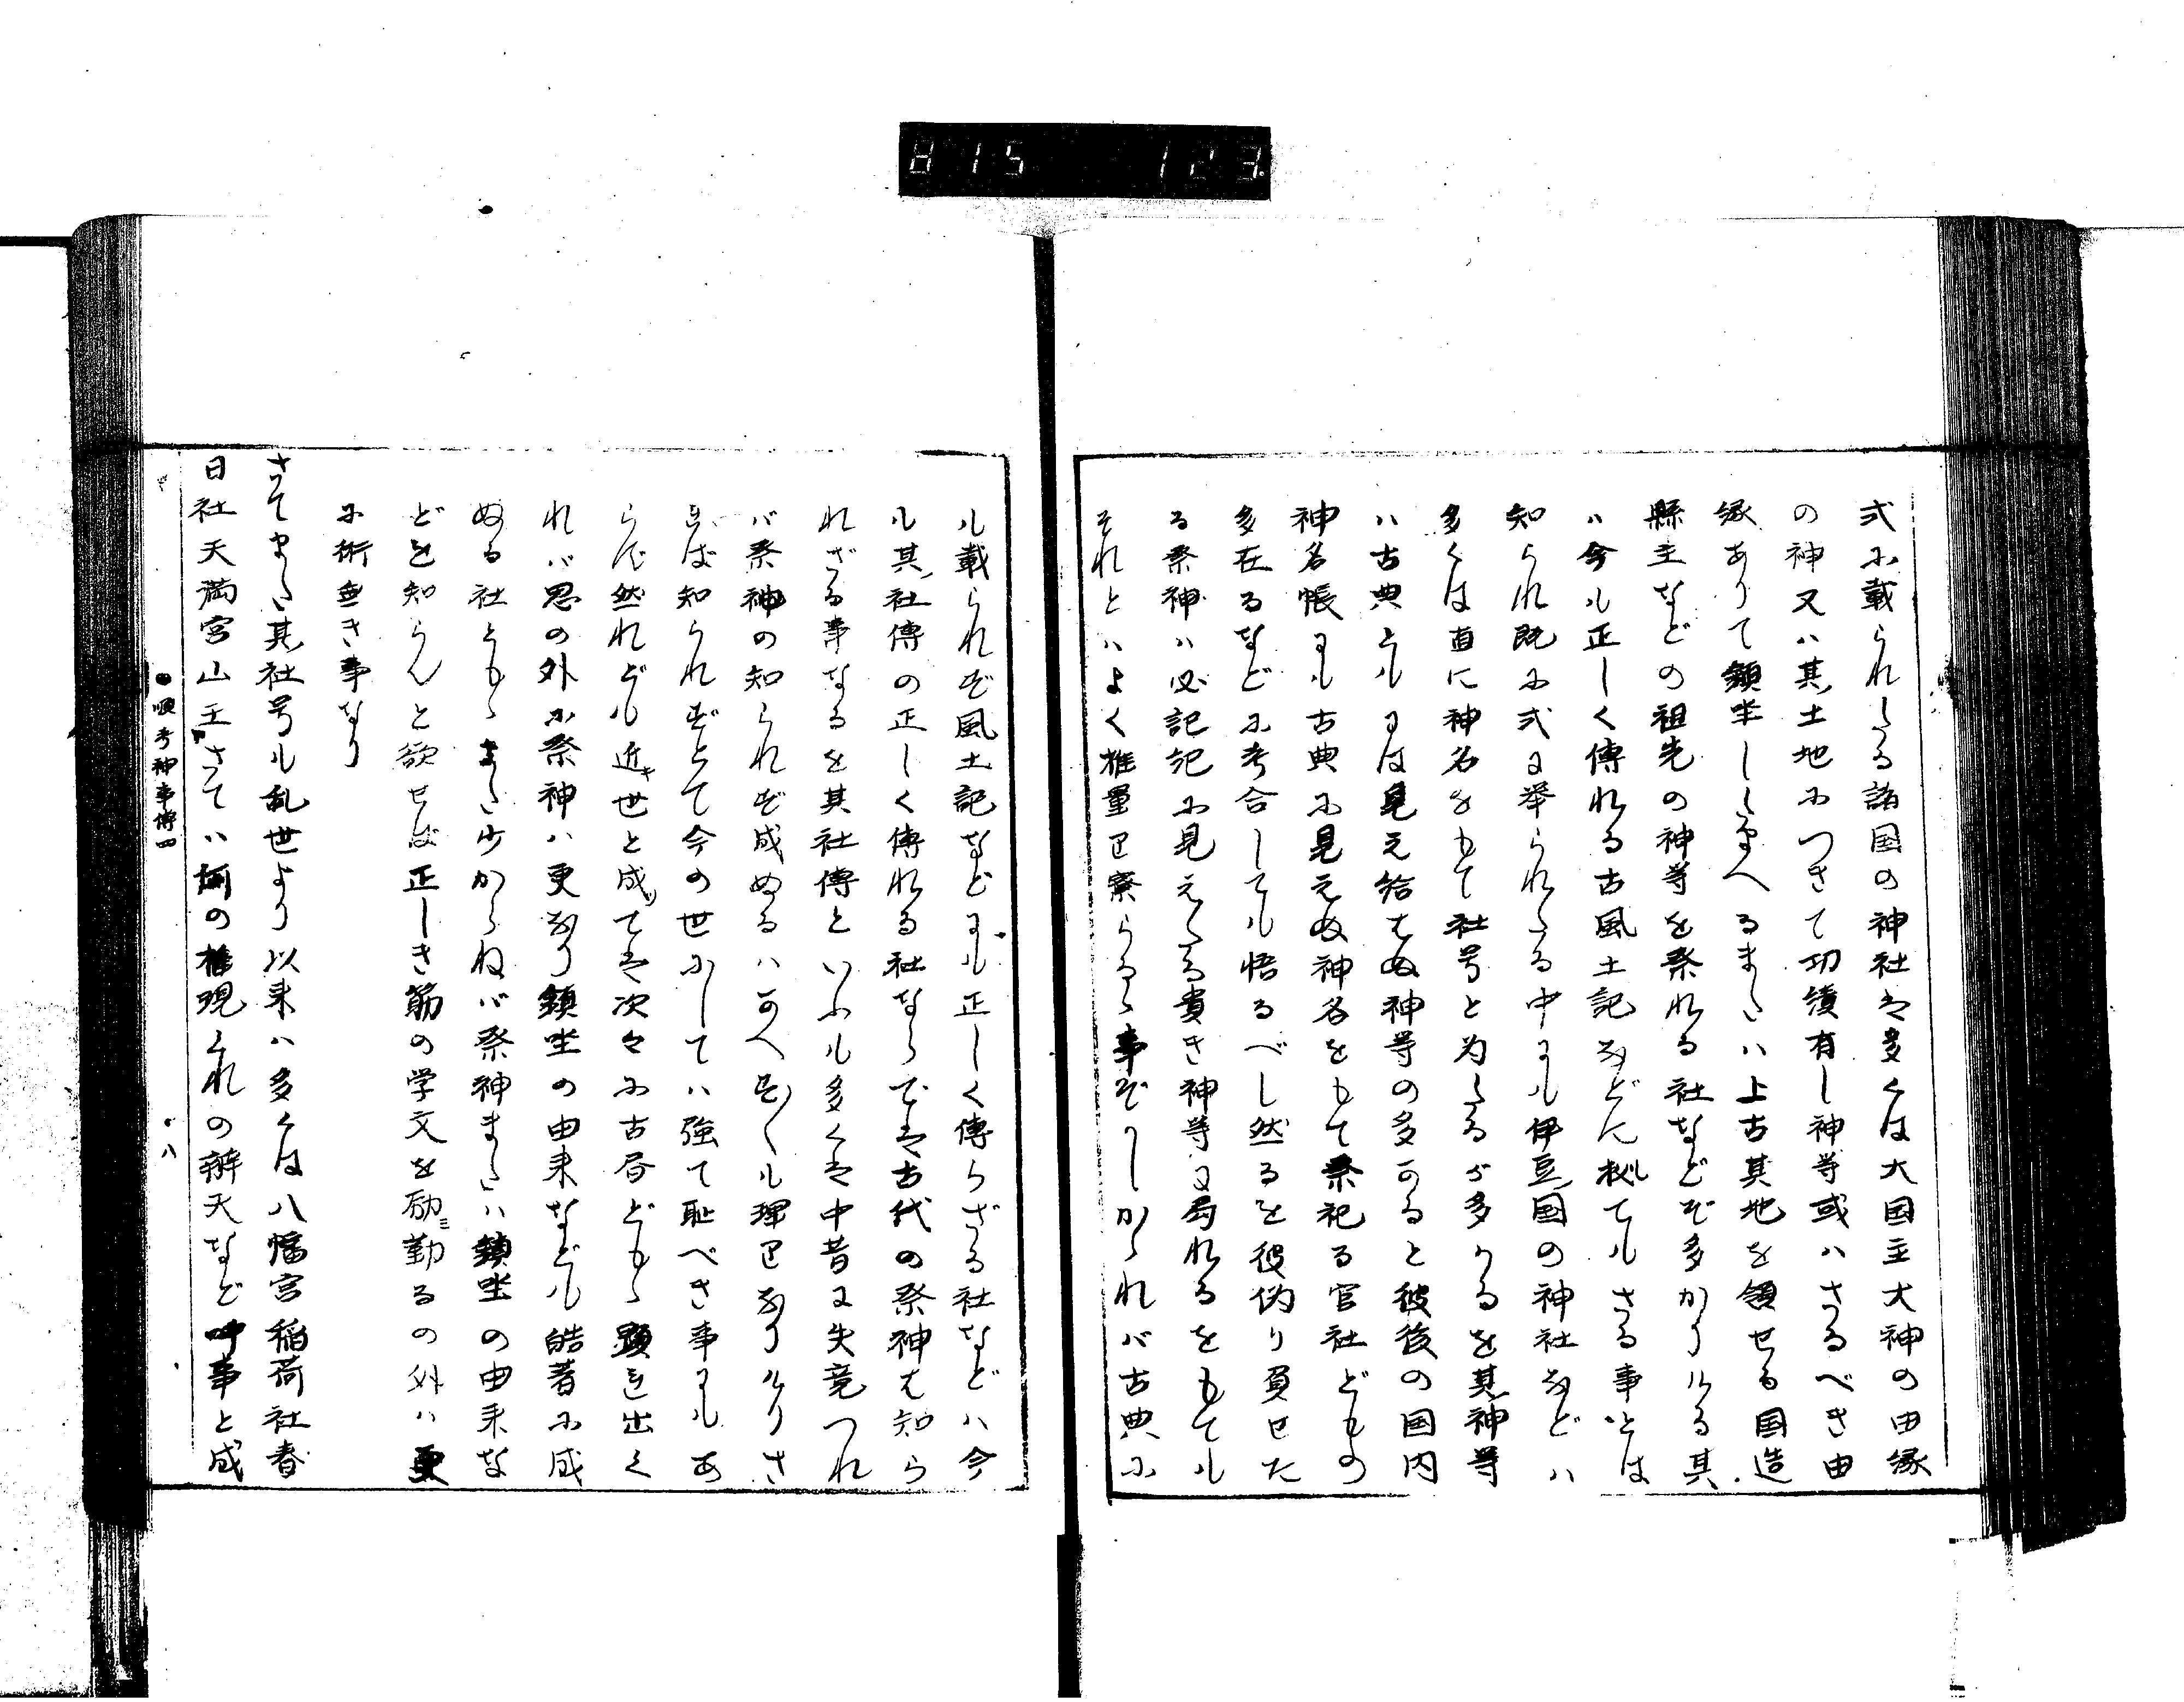 815 123
式に載られたる諸国の神社は多くは大国主大神の由縁
の神又ハ其土地につきて功績有し神等或ハさるべき由
縁ありて鎮坐したまへるまたハ上古其地を領せる国造
縣主などの祖先の神等を祭れる社などぞ多かりける其
ハ今も正しく傳れる古風土記などに拠てもさる事とは
知られ既に式に挙られたる中にも伊豆国の神社などハ
多くは直に神名をもて社号と為たるが多かるを其神等
ハ古典どもには見え給はぬ神等の多かると彼後の国内
神名帳にも古典に見えぬ神名をもて祭祀る官社どもの
多在るなどに考合しても悟るべし然るを彼偽り負せた
る祭神ハ必記紀に見えたる貴き神等に局れるをもても
それとハよく推量り察らるゝ事ぞかしかゝれバ古典に
も載られず風土記などにも正しく傳らざる社などハ今
も其社傳の正しく傳れる社ならでは古代の祭神は知ら
れざる事なるを其社傳といふも多くは中昔に失竟つれ
バ祭神の知られず成ぬるハうべうべしくも理りなりけりさ
れば知られずとて今の世にしてハ強て耻べき事にもあ
らず然れども近キ世と成りては次々に古昔どもゝ顕れ出く
れバ思の外に祭神ハ更なり鎮坐の由来なども皓著に成
ぬる社ともゝまた少かゝねバ祭神またハ鎮坐の由来な
どを知らんと欲せば正しき筋の学文を励ミ勤るの外ハ更
に術無き事なり
さてまた其社号も乱世より以来ハ多くは八幡宮稲荷社春
日社天満宮山王さてハ何の権現くれの辨天など叶事と成
順考神事傳四
八